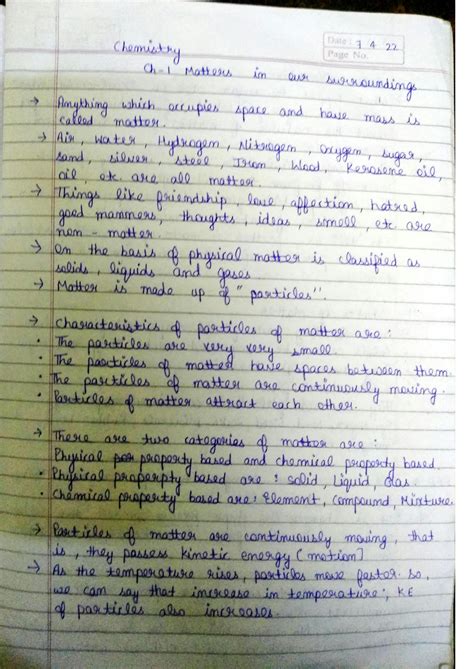 Date: 7 4 22
Page No.
Chemistry
Ch-1 Matters in our surroundings
→ Anything which occupies space and have mass is
called matter.
→ Air, Water, Hydrogen, Nitrogen, Oxygen, sugar,
sand, silver, steel, Iron, Wood, Kerosene oil,
oil, etc. are all matter.
→ Things like friendship, love, affection, hatred,
good manners, thoughts, ideas, smell, etc are
non-matter.
→ On the basis of physical matter is classified as
solids, liquids and gases
→ Matter is made up of "particles".
→ Characteristics of particles of matter are:
• The particles are very very small
• The particles of matter have spaces between them.
• The particles of matter are continuously moving.
• Particles of matter attract each other.
→ There are two categories of matter are:
Physical property based and chemical property based.
• Physical properpty based are: solid, Liquid, Gas.
• Chemical property based are: Element, Compound, Mixture.
→ Particles of matter are continuously moving, that
is, they possess kinetic energy [motion]
→ As the temperature rises, particles move faster. So,
we can say that increase in temperature, KE
of particles also increases.